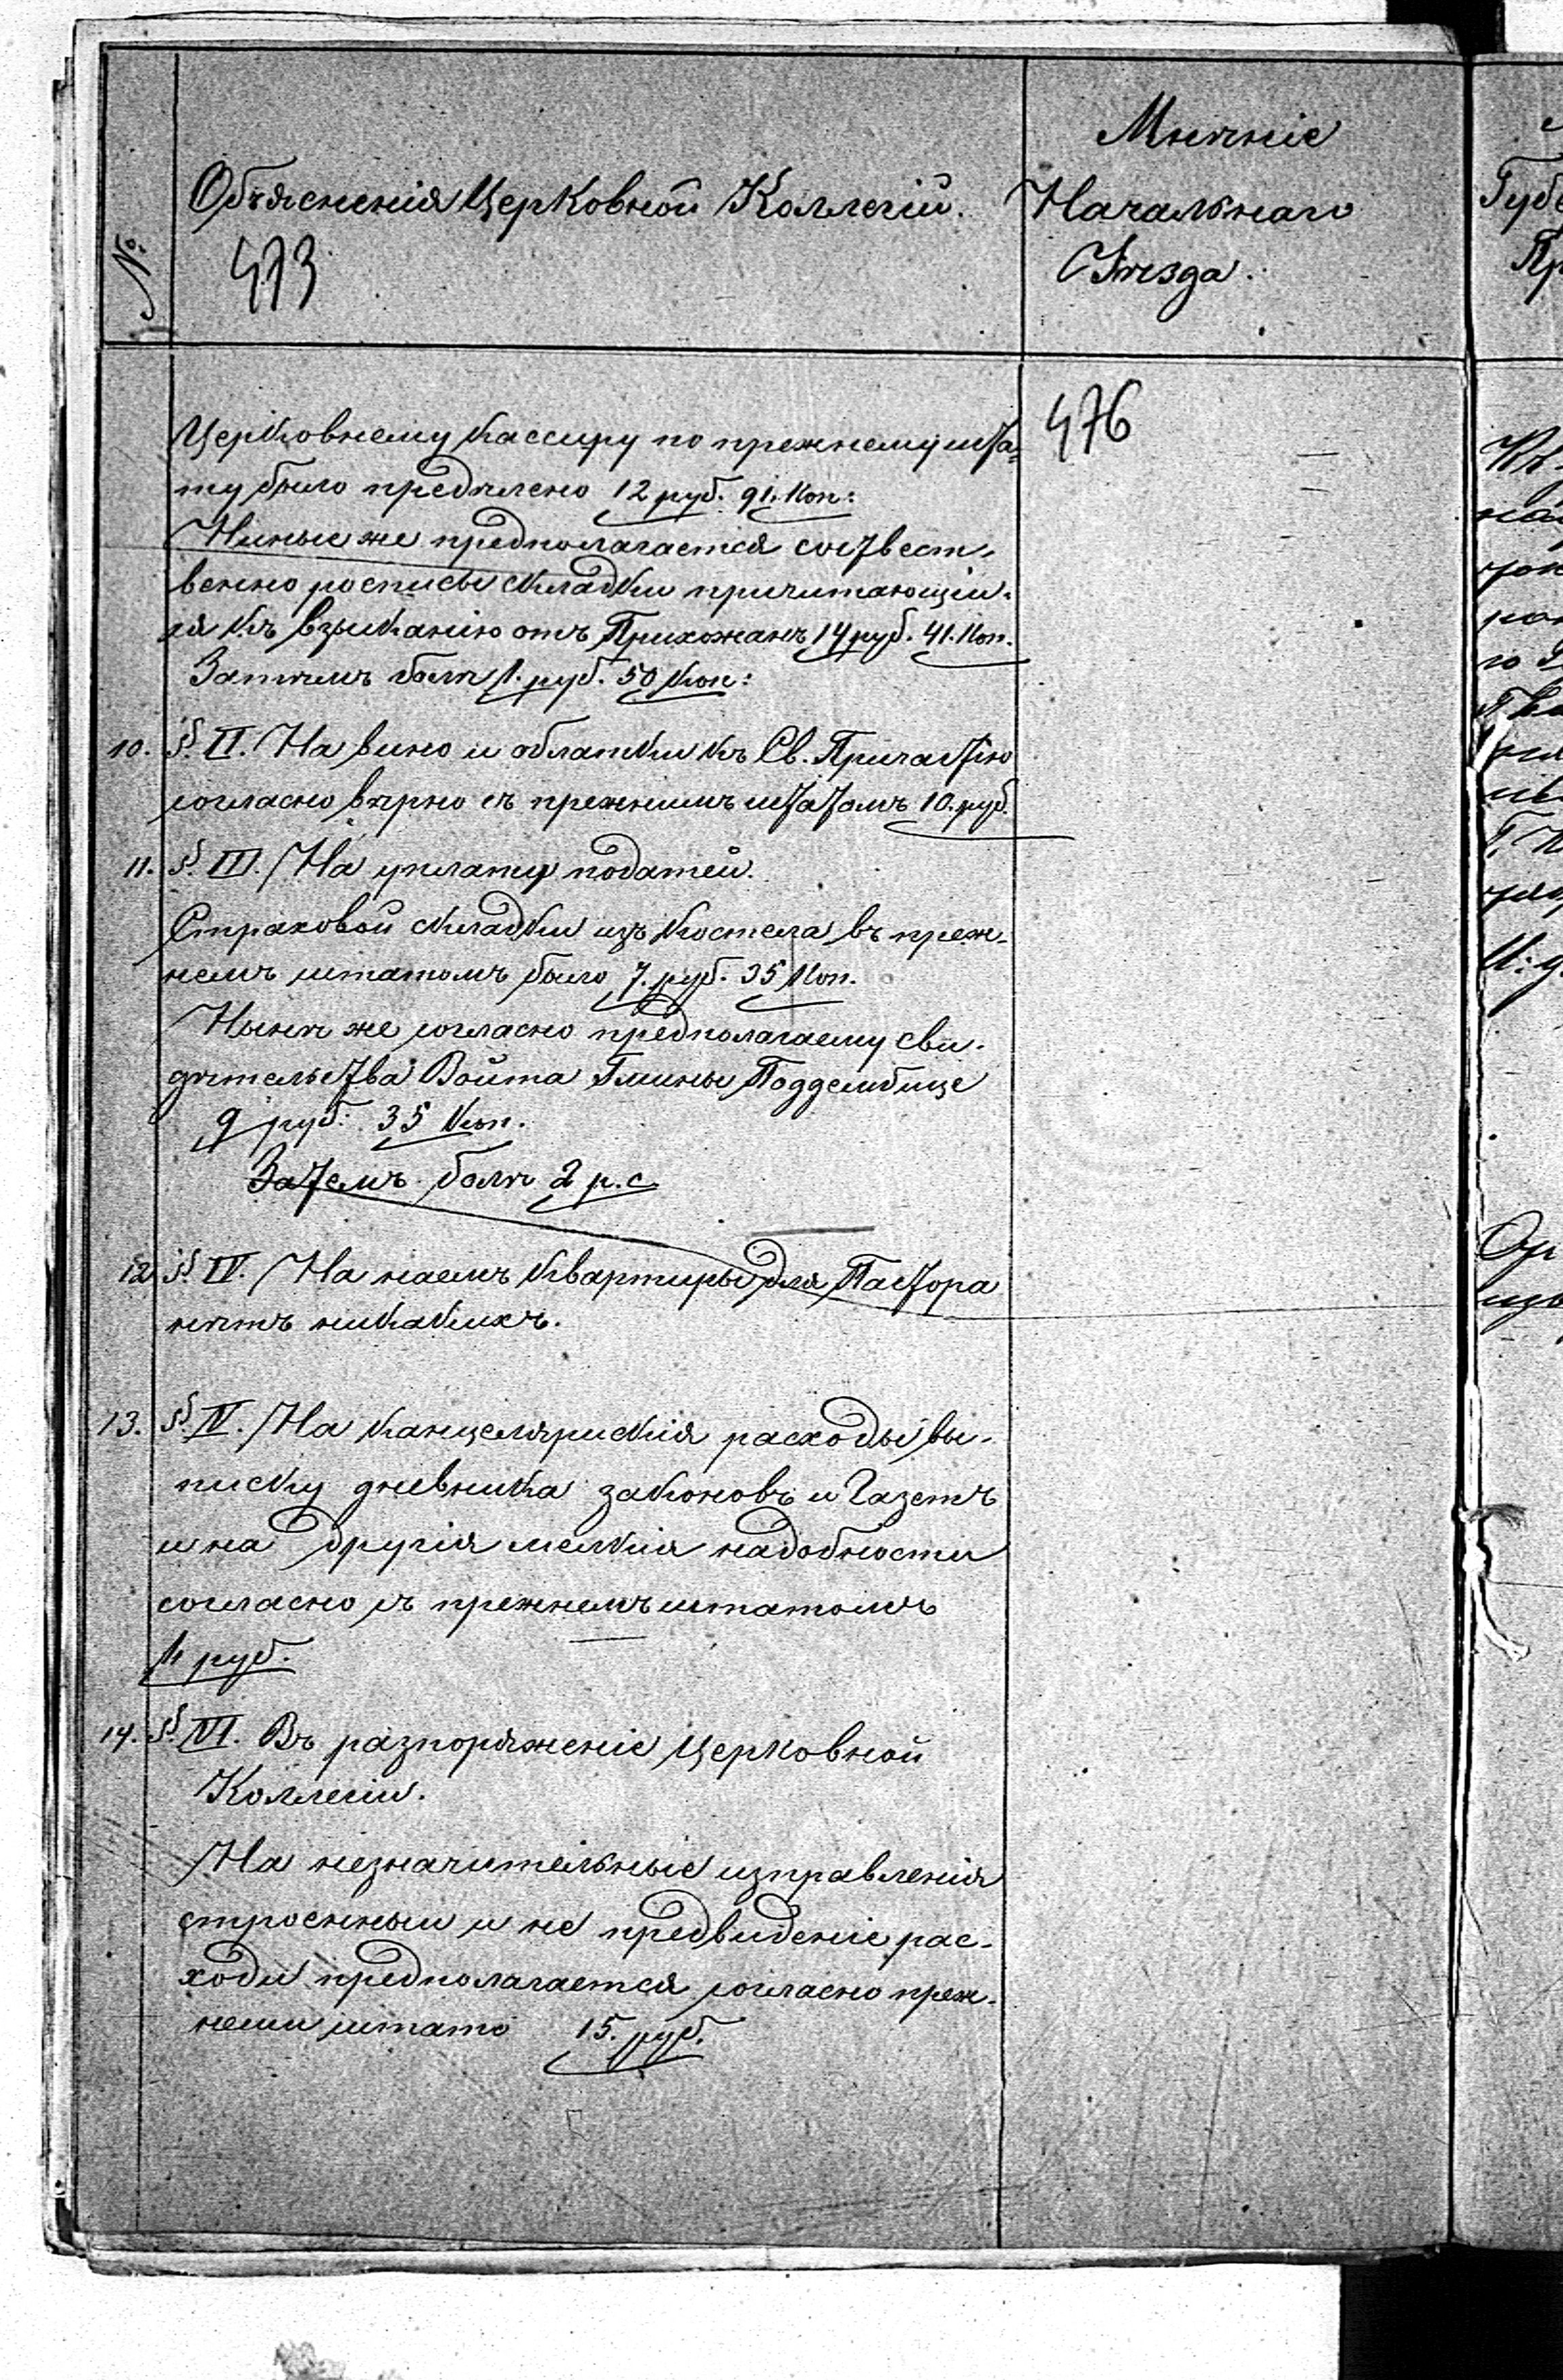 №
Объясненія Церковной Коллегіи.
473
Мнѣніе
Начальнаго
Уѣзда.
476
Церковнему Кассиру по прежнему шта=
ту было предѣлено 12 руб. 91. Коп:
Ныные же предполагается соотвест,
венно росписы складки причитающіи-
ся къ взысканію отъ Прихожанъ 14 руб. 41. Коп.
Затѣмъ болѣ 1. руб. 50 Коп:
10. §. II. На вино и облатки къ Св. Причастію
согласно вѣрно съ прежнимъ штатомъ 10. руб.
11. §. III. На уплату податей.
Страховой складки изъ Костела въ преж-
немъ штатомъ было 7. руб. 35 Коп.
Нынѣ же согласно предполагаему сви-
дѣтельства Войта Гмины Поддембице
9 руб: 35 Коп.
Затемъ болѣ 2 р. с.
12 §. IV. На наемъ Квартиры для Пастора
нѣтъ никакихъ.
13. §. V. На Канцеляриския расходы вы-
писку дневника законовъ и Газетъ
и на другія мелкія надобности
согласно съ прежнемъ штатомъ
4 руб.
14. §. VI. Въ разпоряженіе Церковной
Коллегіи.
На незначительные изправленія
строенныи и не предвиденіе рас-
ходы предполагается согласно преж-
неми штато 15. руб.
Губе